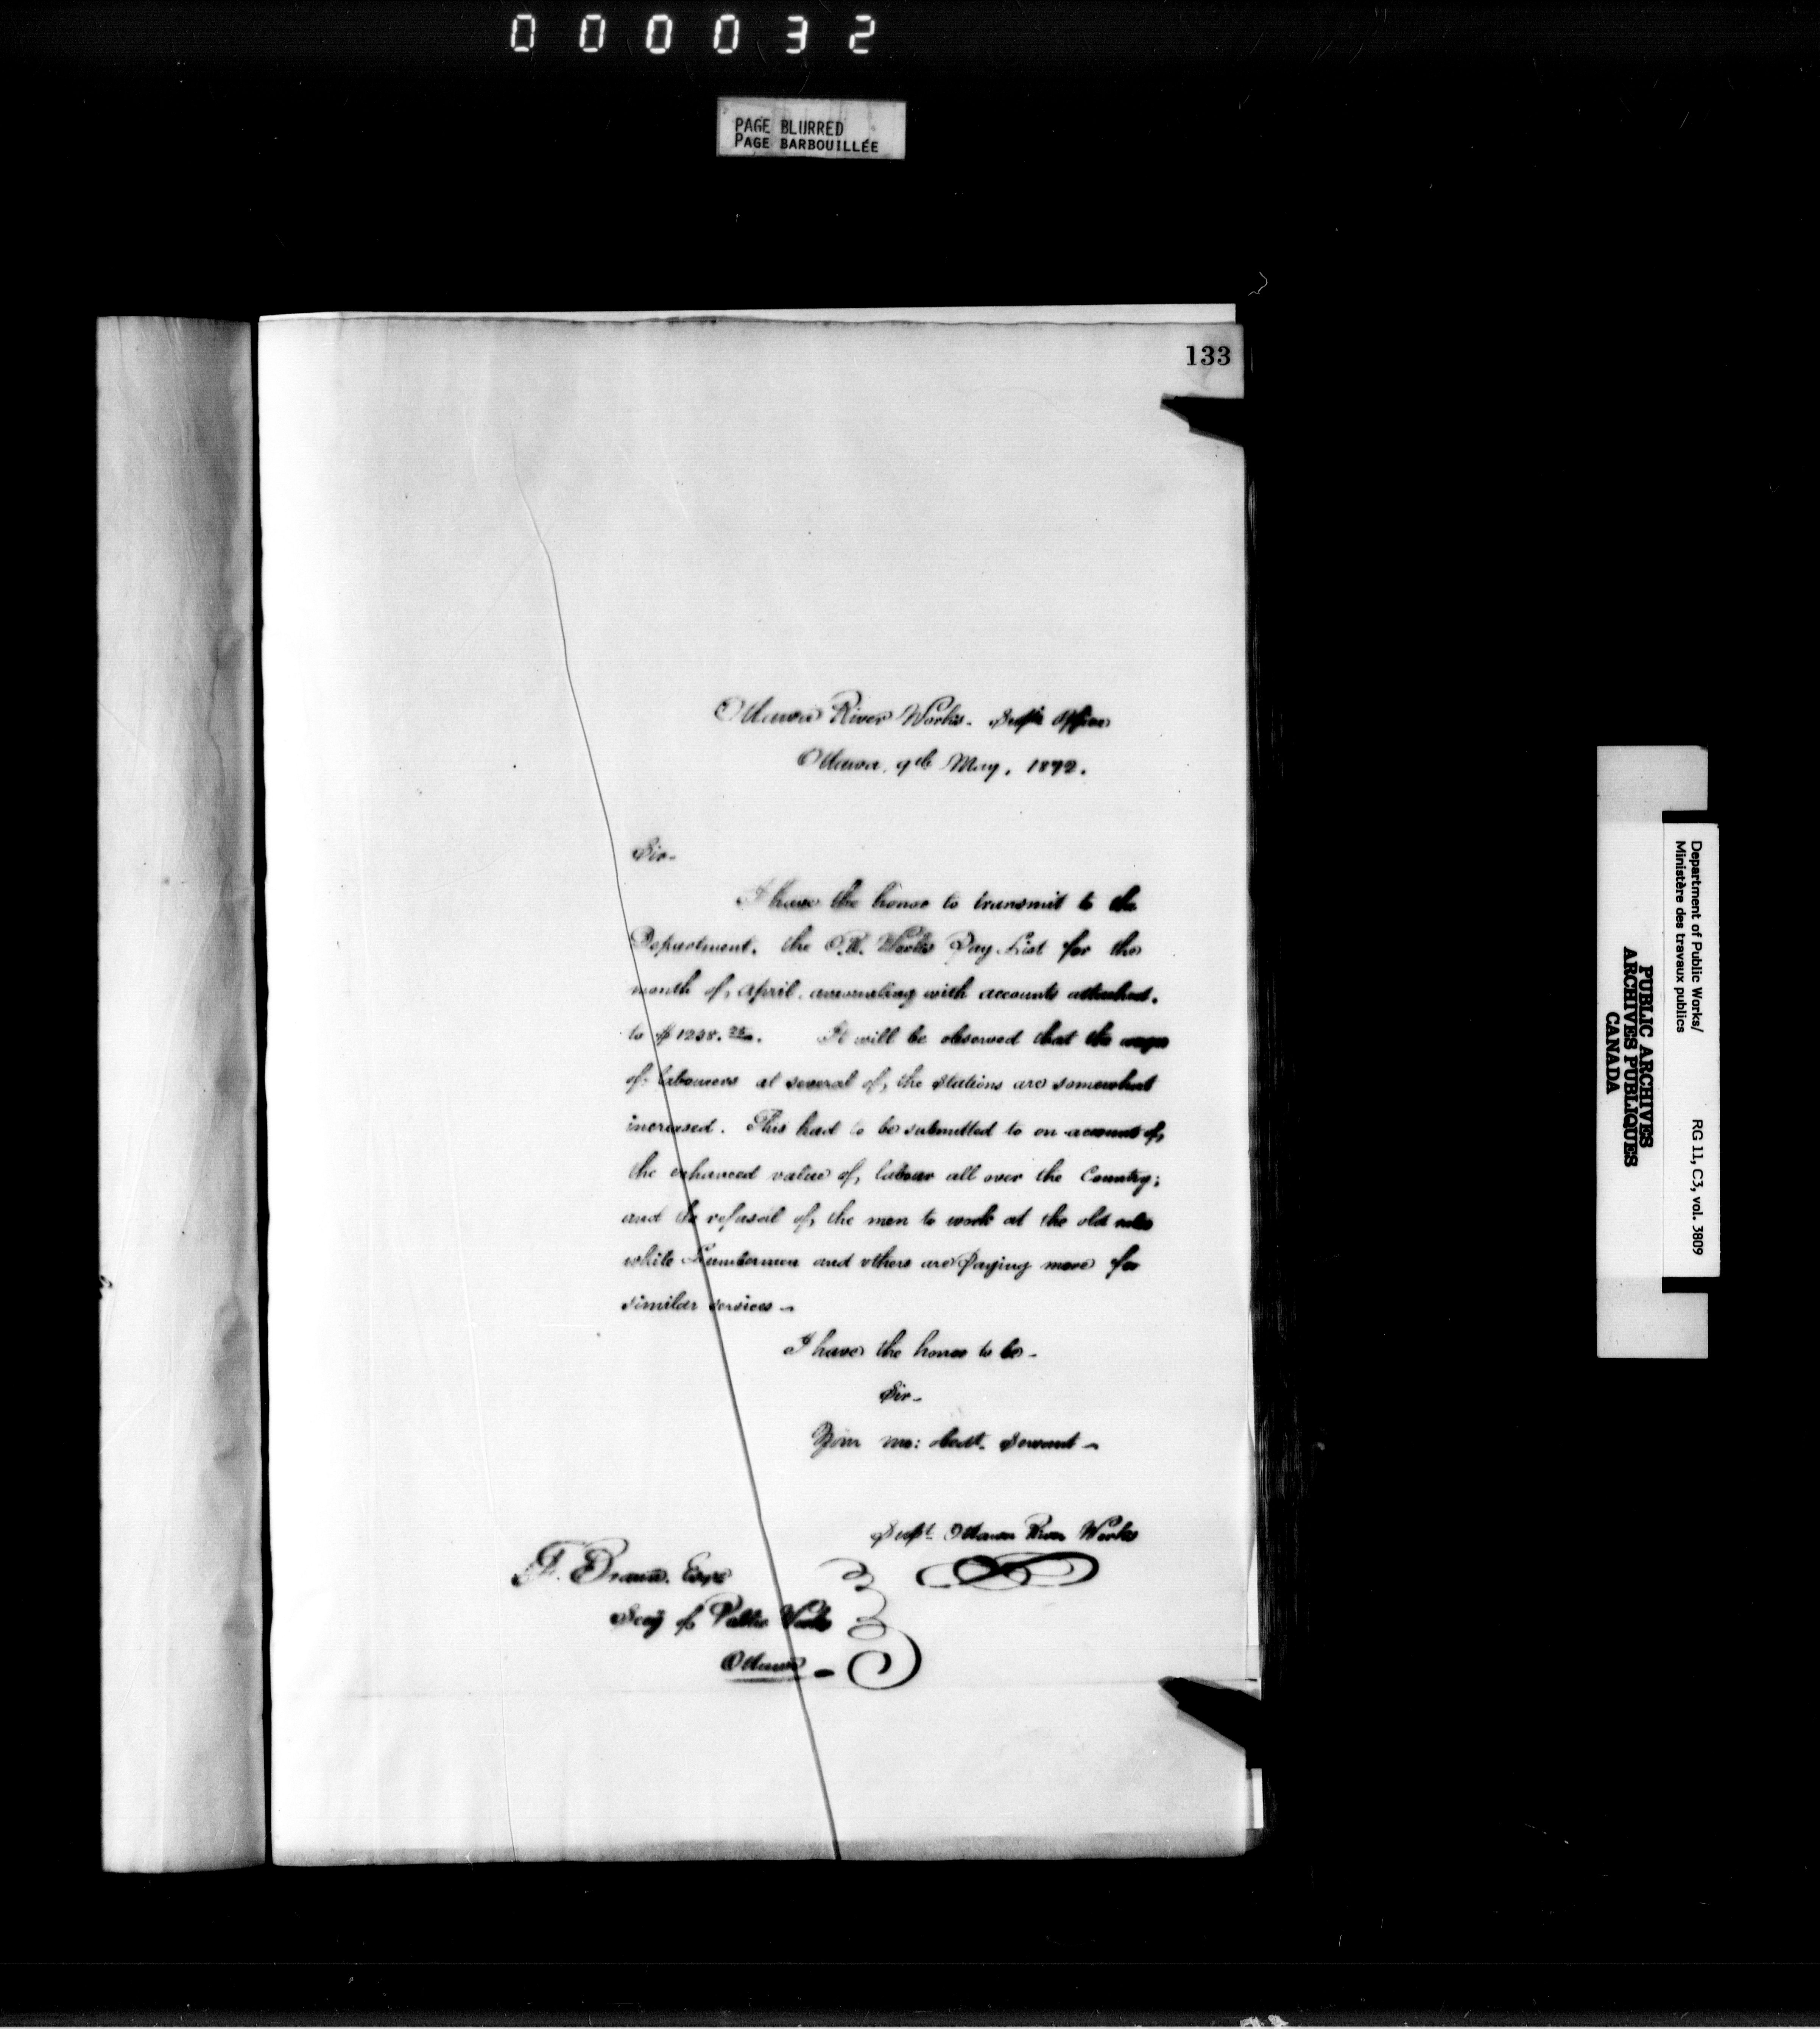 000032
PAGE BLURRED
PAGE BARBOUILLÉE
133
Ottawa River Works. Supts Office
Ottawa, 9th May, 1872.
Sir-
I have the honor to transmit to the
Department, the O.R. Works Pay List for the
month of April, amounting with accounts attached,
to $1238.
It will be observed that the wages
of labourers at several of the Stations are somewhat
increased. This had to be submitted to on account of
the enhanced value of labour all over the Country;
and the refusal of the men to work at the old rates
while Lumbermen and others are paying more for
similar services -
I have the honor to be -
Sir -
Your mo: obedt. Servant -
Supt. Ottawa River Works
F. Braun. Esqre
Secy of Public Works
Ottawa -
Department of Public Works/
Ministère des travaux publics
RG 11, C3, vol. 3809
PUBLIC ARCHIVES
ARCHIVES PUBLIQUES
CANADA